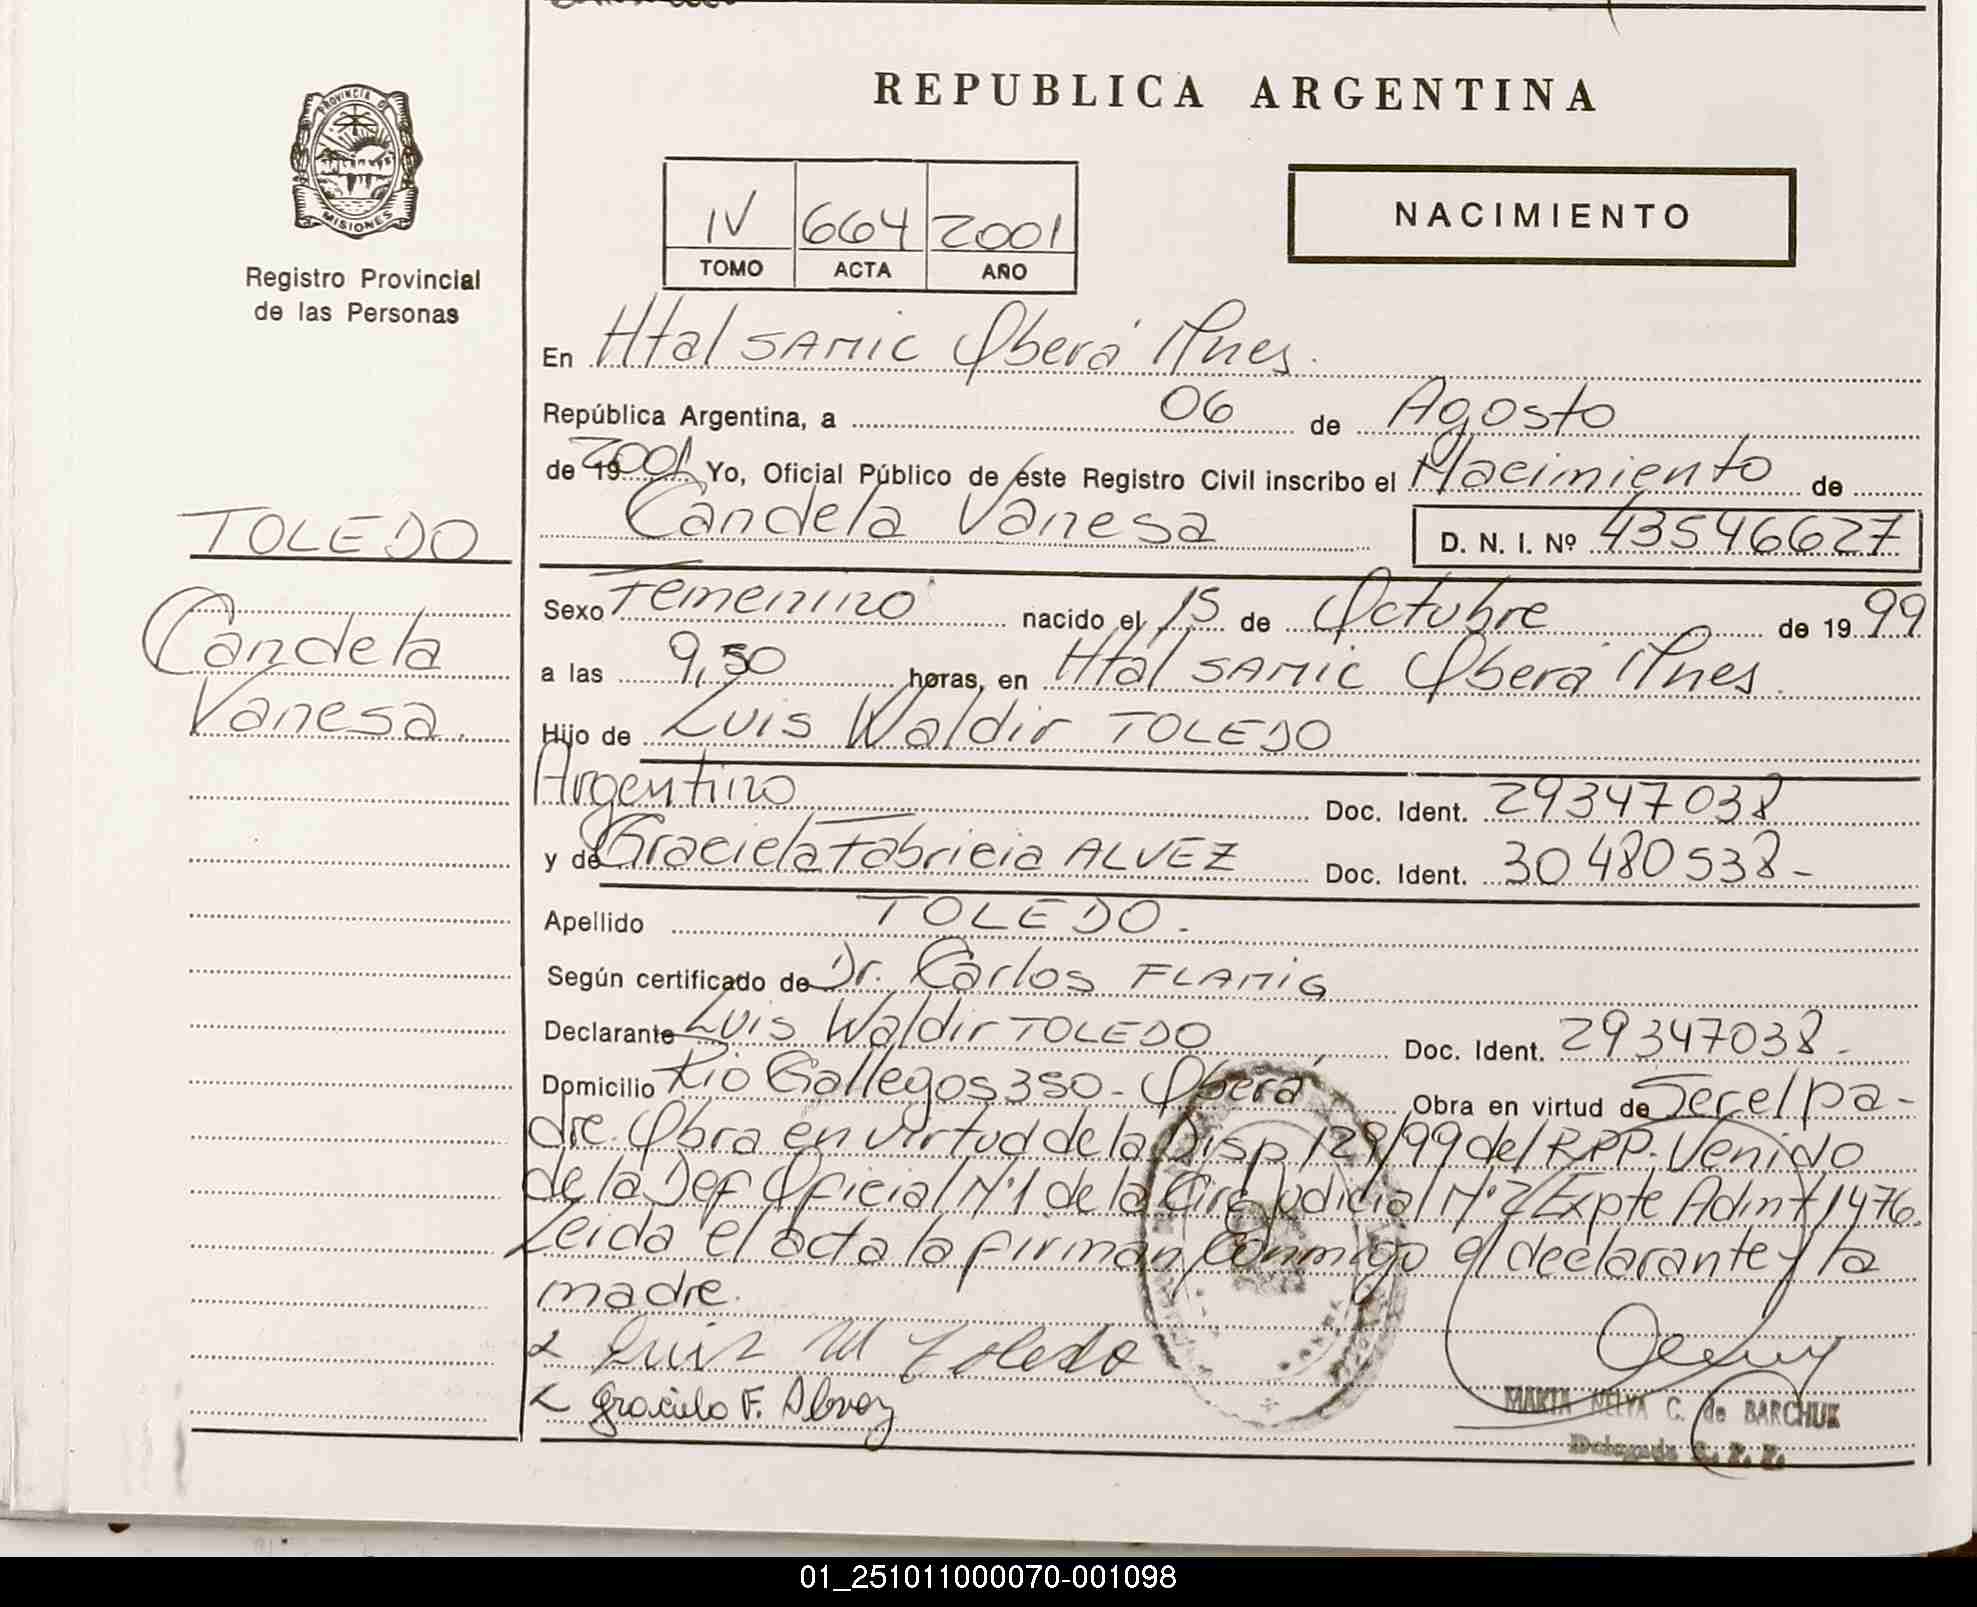 REPUBLICA ARGENTINA
PROVINCIA DE
MISIONES
Registro Provincial
de las Personas
IV 664 2001
TOMO ACTA AÑO
NACIMIENTO
En Htal SAMIC Oberá Mnes.
República Argentina, a 06 de Agosto
de 19 2001 Yo, Oficial Público de este Registro Civil inscribo el Nacimiento de
Candela Vanesa D. N. I. Nº 43546627
TOLEDO
Candela
Vanesa.
Sexo Femenino nacido el 15 de Octubre de 1999
a las 9,50 horas, en Htal SAMIC Oberá Mnes.
Hijo de Luis Waldir TOLEDO
Argentino Doc. Ident. 29347038
y de Graciela Fabricia ALVEZ Doc. Ident. 30480538-
Apellido TOLEDO.
Según certificado de Dr. Carlos FLAMIG
Declarante Luis Waldir TOLEDO Doc. Ident. 29347038-
Domicilio Rio Gallegos 350- Oberá Obra en virtud de Ser el pa-
dre. Obra en virtud de la Disp 129/99 del RPP. Venido
de la Def Oficial Nº1 de la Circ Judicial Nº2 Expte Admt 1476.
Leida el acta la firman conmigo el declarante y la
madre.
Luis W Toledo
Graciela F. Alvez
MARTA NELVA C. de BARCHUK
Delegada R. P. P.
01_251011000070-001098